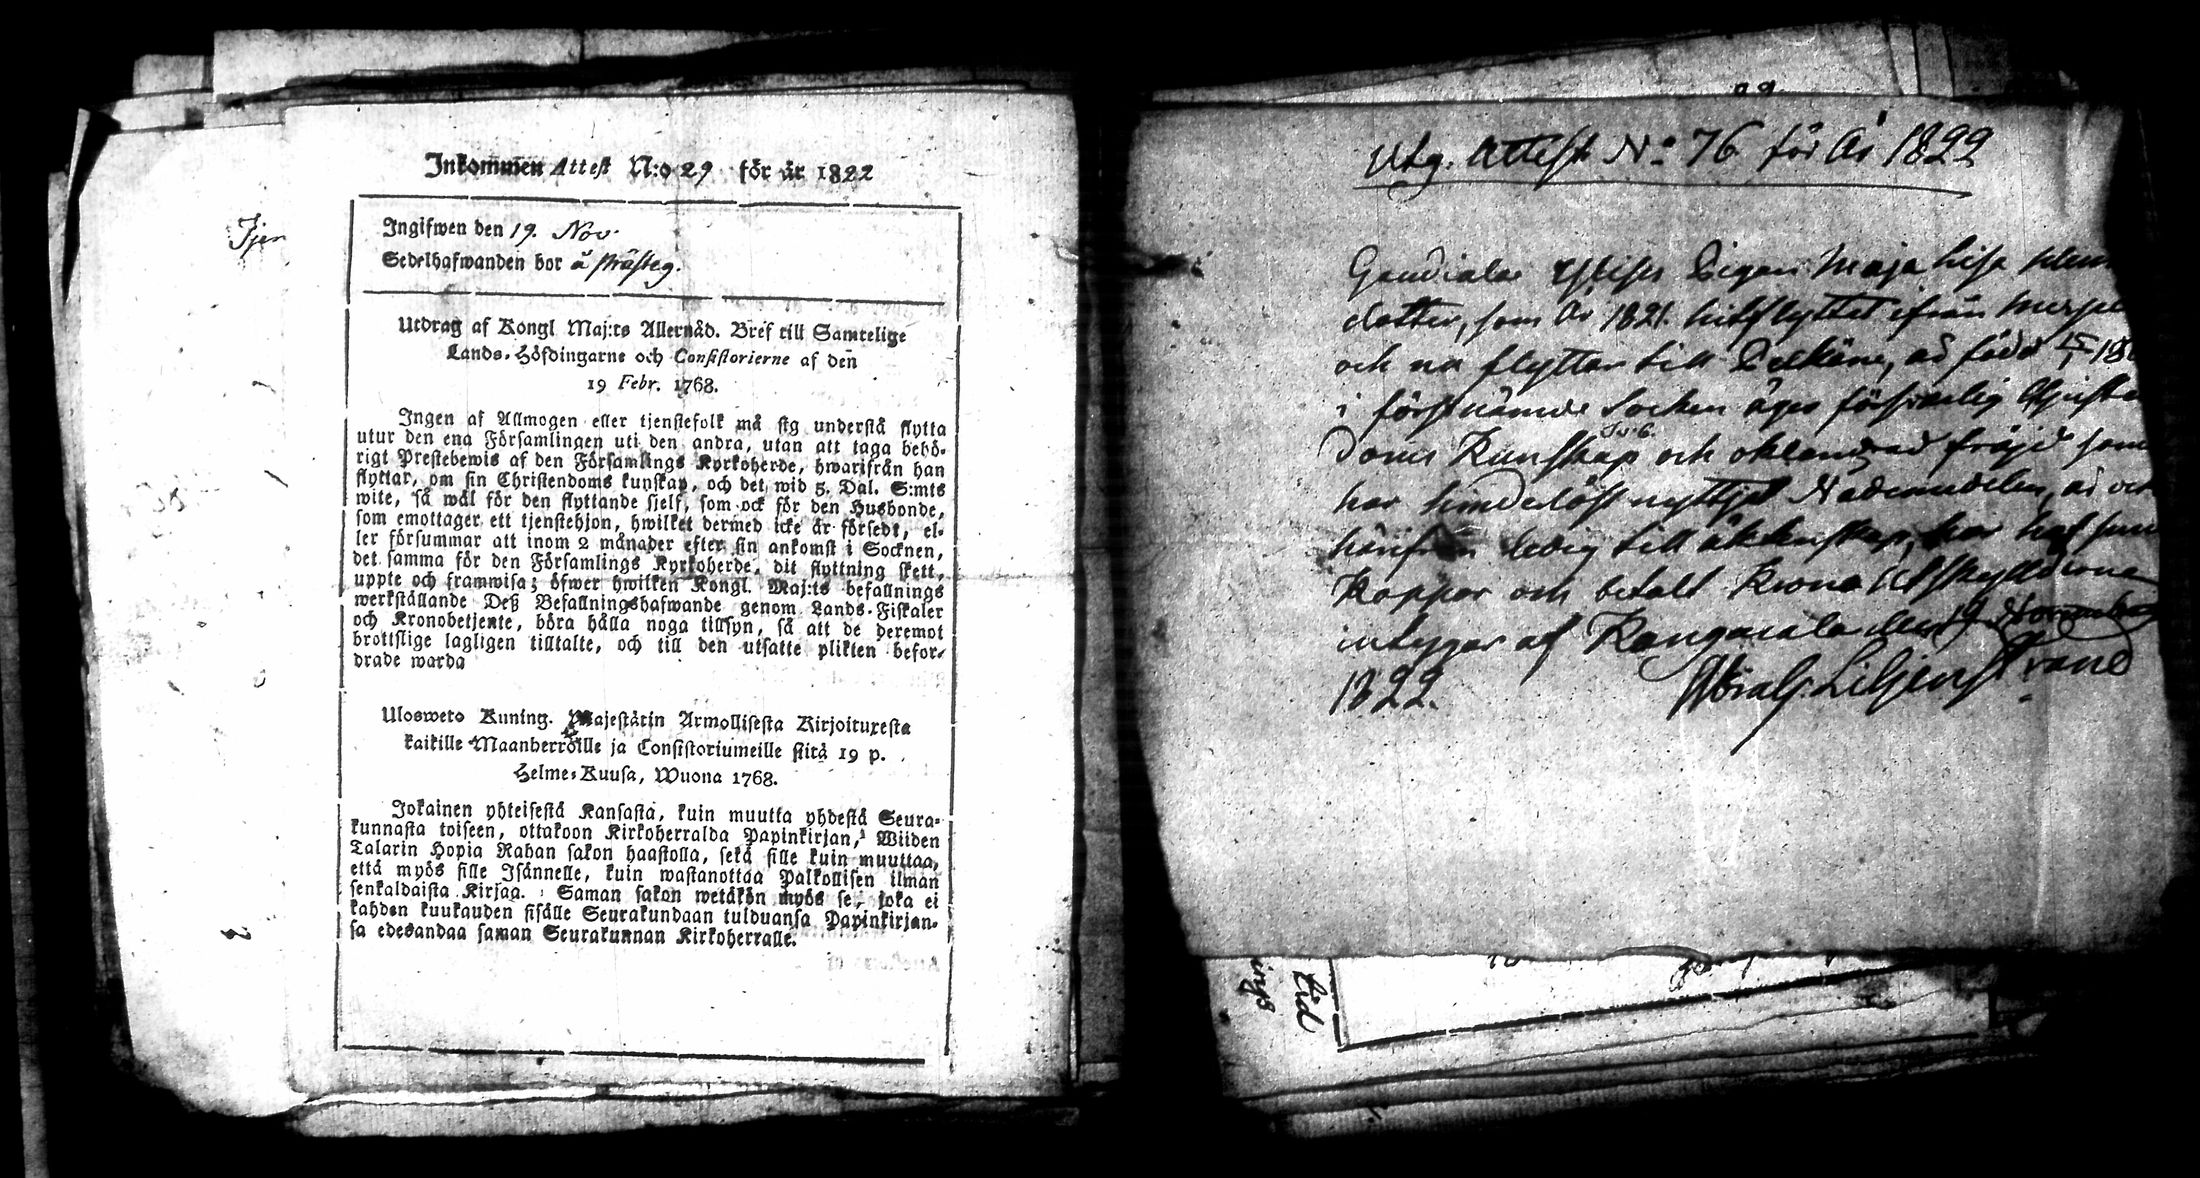 Inkommen Attest N:o 29 för år 1822
Ingifwen den 19. Nov.
Sedelhafwanden bor å Prästeg.
Utdrag af Kongl Maj:ts Allernåd. Bref till Samtelige
Lands-Höfdingarne och Consistorierne af den
19 Febr. 1768.
Ingen af Allmogen eller tjenstefolk må sig understå flytta
utur den ena Församlingen uti den andra, utan att taga behö-
rigt Prestebewis af den Församlings Kyrkoherde, hwarifrån han
flyttar, om sin Christendoms kunskap, och det wid 5. Dal. S:mts
wite, så wäl för den flyttande sielf, som ock för den Husbonde,
som emottager ett tjenstehjon, hwilket dermed icke är försedt, el-
ler försummar att inom 2 månader efter sin ankomst i Socknen,
det samma för den Församlings Kyrkoherde, dit flyttning skett,
uppte och framwisa; öfwer hwilken Kongl. Maj:ts befallnings
werkställande Deß Befallningshafwande genom Lands-Fiskaler
och Kronobetjente, böra hålla noga tillsyn, så att de deremot
brottslige lagligen tilltalte, och till den utsatte plikten befor-
drade warda
Ulosweto Kuning. Majestätin Armollisesta Kirjoituxesta
kaikille Maanherroille ja Consistoriumeille siitä 19 p.
Helme-Kuusa, Wuona 1768.
Jokainen yhteisestä Kansasta, kuin muutta yhdestä Seura-
kunnasta toiseen, ottakoon Kirkoherralda Papinkirjan, Wiiden
Talarin Hopia Rahan sakon haastolla, sekä sille kuin muuttaa,
että myös sille Isännelle, kuin wastanottaa Palkollisen ilman
senkaldaista Kirjaa. Saman sakon wetäkön myös se, joka ei
kahden kuukauden sisälle Seurakundaan tulduansa Papinkirjan-
sa edesandaa saman Seurakunnan Kirkoherralle.
Tjen
Utg. Attest No 76 för År 1822
Pigan Maja Lisa
dotter, som År 1821. hitflyttet ifrån
och nu flyttar till Pelkäne, är född
i förstnämde Socken äger försvarlig Christen
doms Kunskap och oklandrad fräjd samt
har hinderlöst nyttjat Nådemedlen, är och
härifrån ledig till äktenskap, har haft
Koppor och betalt Krono Utskylderne
intygar af Kangasala den 19 November
1822. Liljenstrand
ings
tid